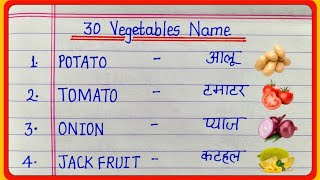 30 Vegetables Name
1. POTATO - आलू
2. TOMATO - टमाटर
3. ONION - प्याज
4. JACK FRUIT - कटहल